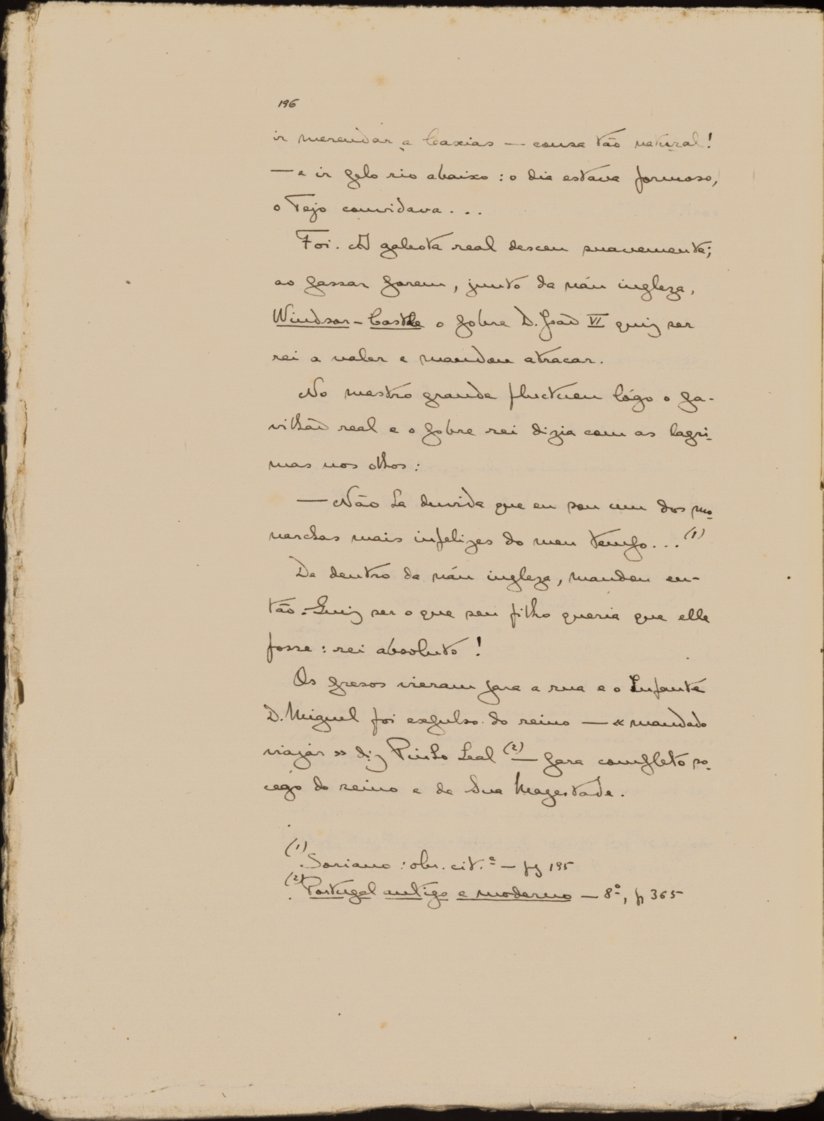 196
ir merendar a Caxias — cousa tão natural!
— e ir pelo rio abaixo: o dia estava formoso,
o Tejo convidava...
Foi. A galeota real desceu suavemente;
ao passar porem, junto da náu ingleza,
Windsor-Castle o pobre D. João VI quiz ser
rei a valer e mandou atracar.
No mastro grande fluctuou lógo o pa-
vilhão real e o pobre rei dizia com as lagri-
mas nos olhos:
— Não ha duvida que eu sou um dos mo-
narchas mais infelizes do meu tempo... (1)
De dentro da náu ingleza, mandou en-
tão. Quiz ser o que seu filho queria que elle
fosse: rei absoluto!
Os presos vieram para a rua e o Infante
D. Miguel foi expulso do reino — « mandado
viajár » diz Pinho Leal (2) — para completo so-
cego do reino e de Sua Magestade.
(1) Soriano: obr. cit.ª — pg 195
(2) Portugal antigo e moderno — 8º, p 365